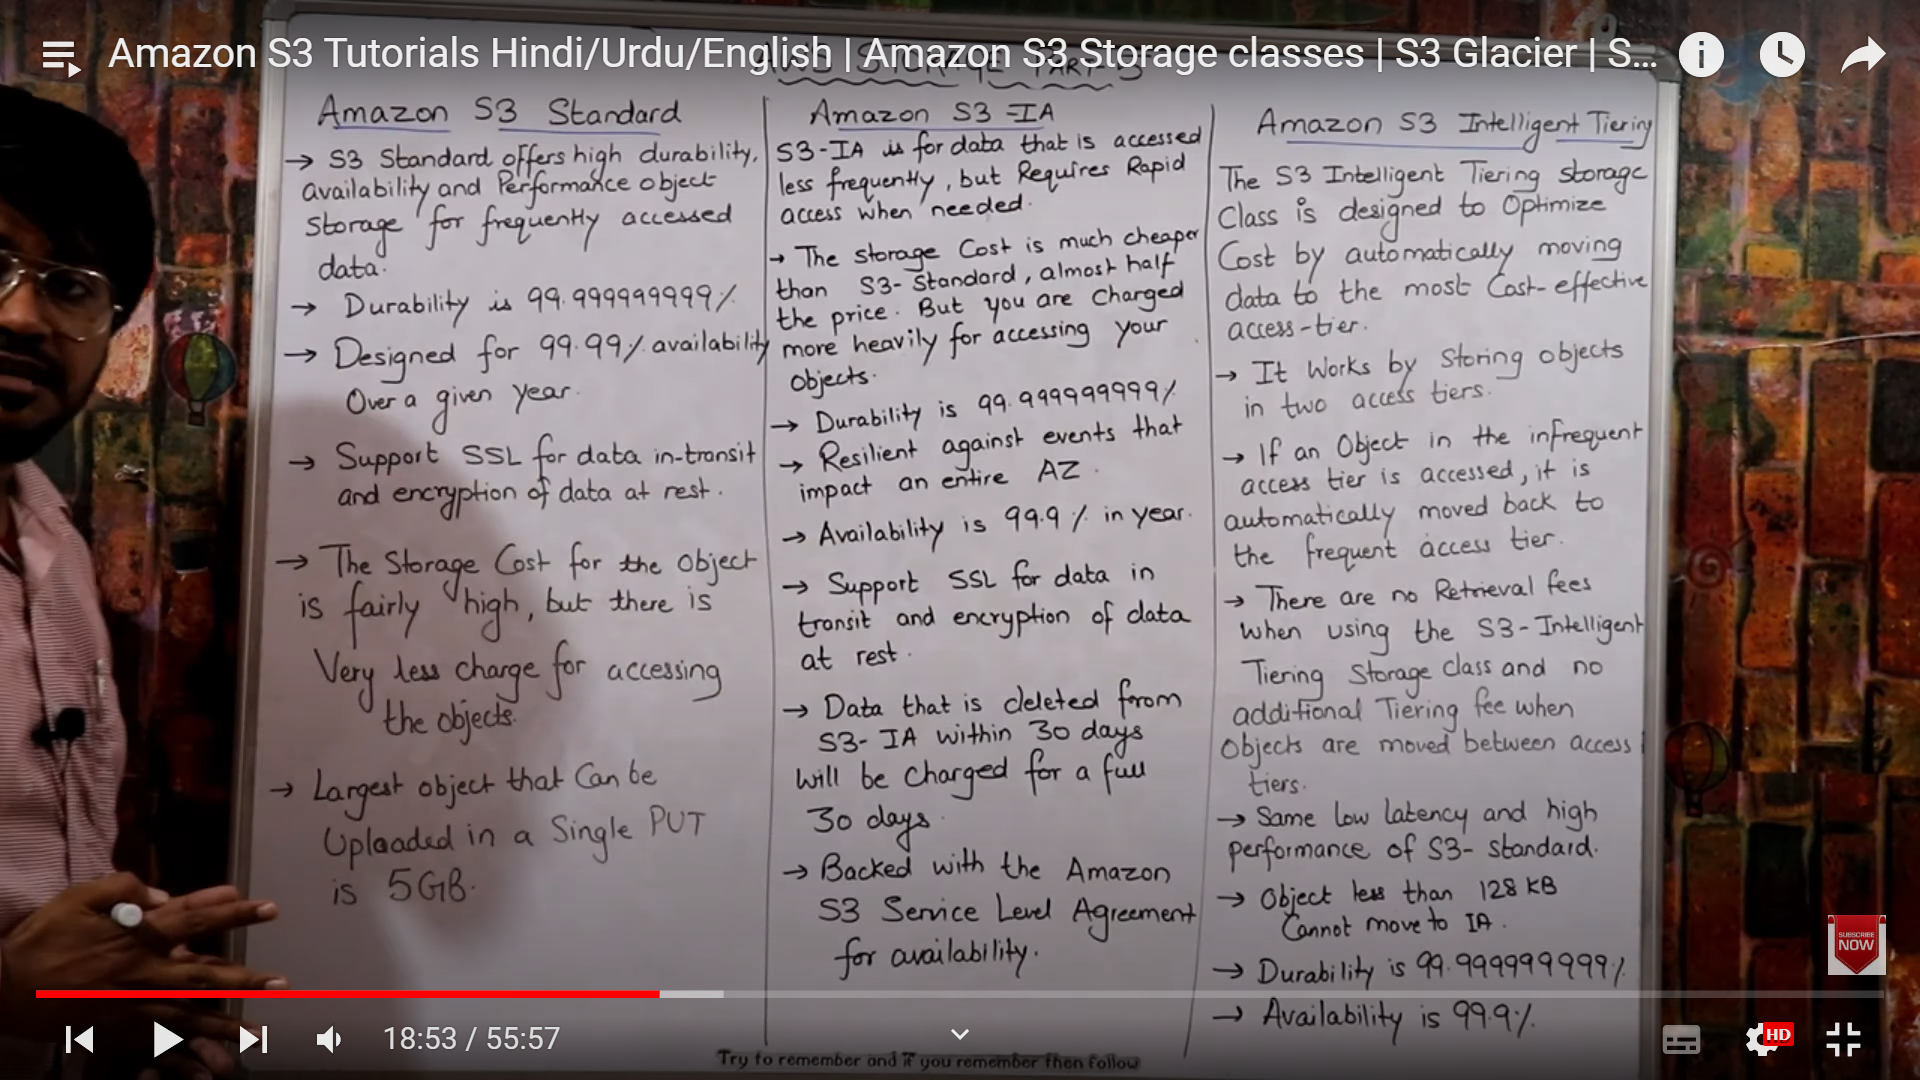 Amazon S3 Tutorials Hindi/Urdu/English | Amazon S3 Storage classes | S3 Glacier | S...
Amazon S3 Standard
→ S3 Standard offers high durability,
availability and Performance object
Storage for frequently accessed
data.
→ Durability is 99.999999999%
→ Designed for 99.99% availability
Over a given year.
→ Support SSL for data in-transit
and encryption of data at rest.
→ The Storage Cost for the object
is fairly high, but there is
Very less charge for accessing
the objects.
→ Largest object that Can be
Uploaded in a Single PUT
is 5GB.
Amazon S3-IA
S3-IA is for data that is accessed
less frequently, but Requires Rapid
access when needed.
→ The storage Cost is much cheaper
than S3-Standard, almost half
the price. But you are charged
more heavily for accessing your
objects.
→ Durability is 99.999999999%
→ Resilient against events that
impact an entire AZ.
→ Availability is 99.9% in year.
→ Support SSL for data in
transit and encryption of data
at rest.
→ Data that is deleted from
S3-IA within 30 days
will be charged for a full
30 days.
→ Backed with the Amazon
S3 Service Level Agreement
for availability.
Amazon S3 Intelligent Tiering
The S3 Intelligent Tiering storage
Class is designed to Optimize
Cost by automatically moving
data to the most Cost-effective
access-tier.
→ It Works by Storing objects
in two access tiers.
→ If an Object in the infrequent
access tier is accessed, it is
automatically moved back to
the frequent access tier.
→ There are no Retrieval fees
when using the S3-Intelligent
Tiering Storage class and no
additional Tiering fee when
Objects are moved between access
tiers.
→ Same low latency and high
performance of S3-standard.
→ Object less than 128 KB
Cannot move to IA.
→ Durability is 99.999999999%
→ Availability is 99.9%.
SUBSCRIBE
NOW
18:53 / 55:57
HD
Try to remember and if you remember then follow